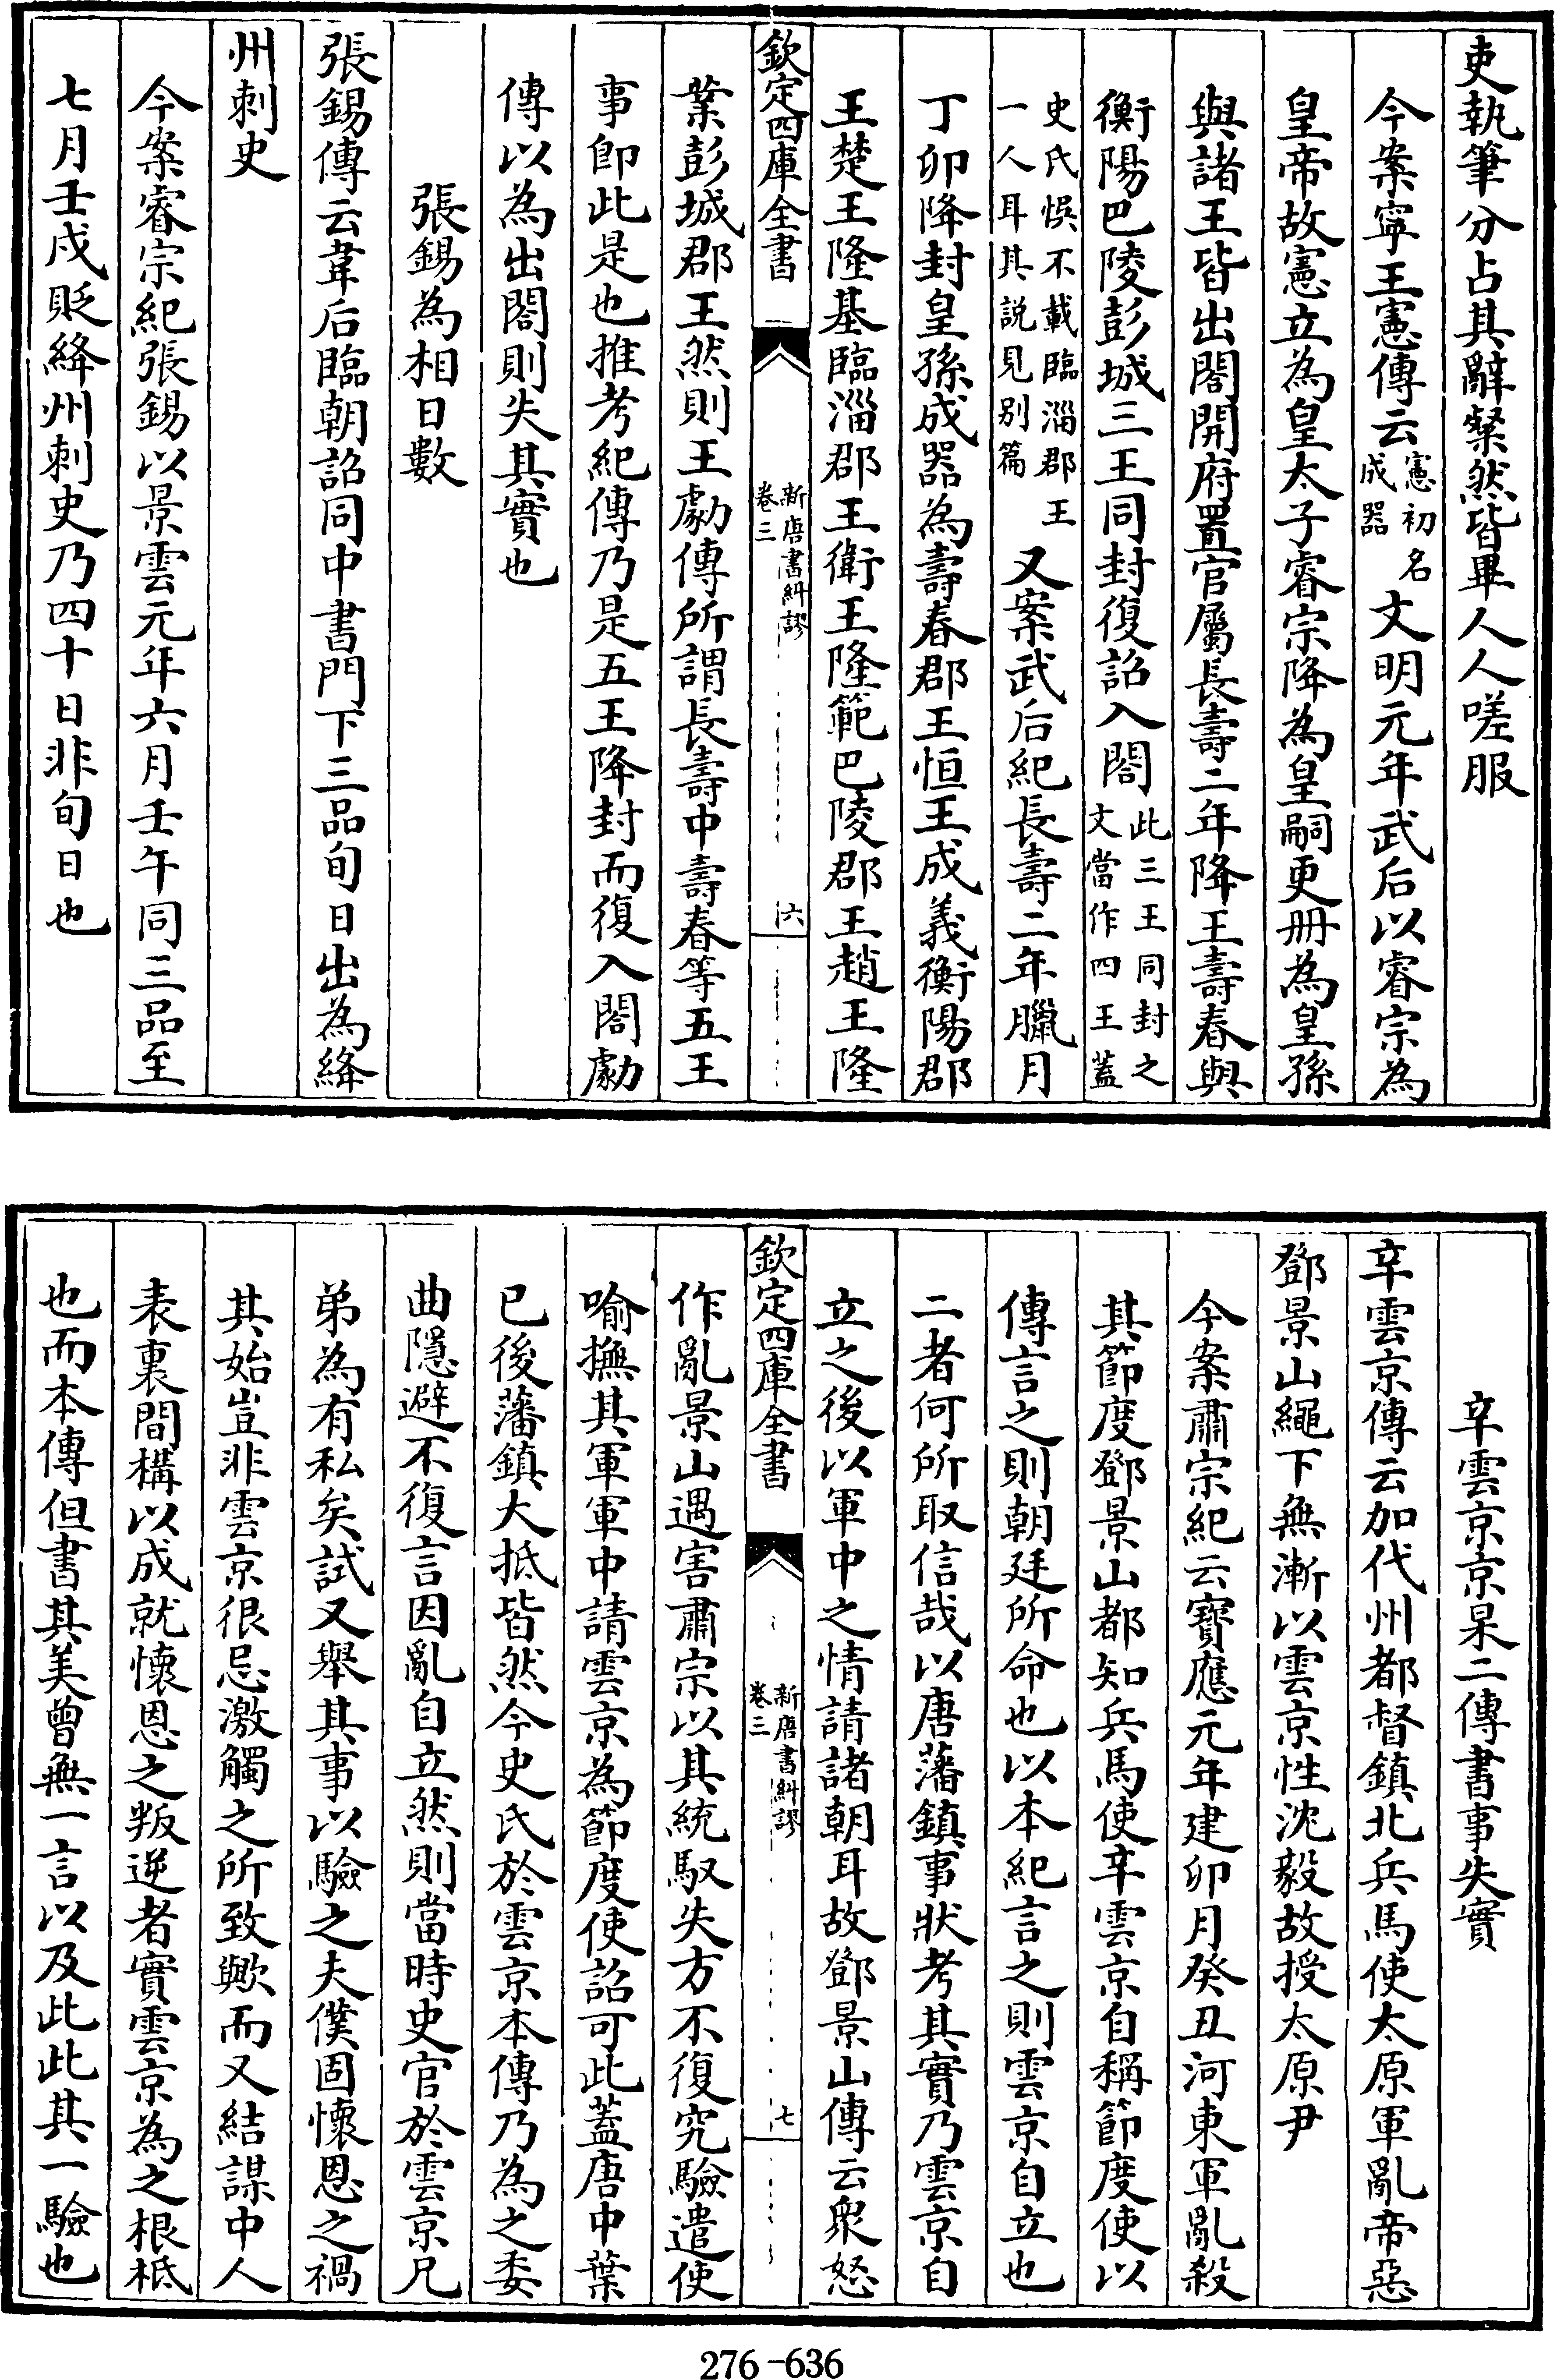 吏執筆分占其辭粲然皆畢人人嗟服
今案寧王憲傳云憲初名成器文明元年武后以睿宗為
皇帝故憲立為皇太子睿宗降為皇嗣更冊為皇孫
與諸王皆出閤開府置官屬長壽二年降王壽春與
衡陽巴陵彭城三王同封復詔入閤此三王同封之文當作四王蓋
史氏悞不載臨淄郡王一人耳其説見别篇又案武后紀長壽二年臘月
丁卯降封皇孫成器為壽春郡王恒王成義衡陽郡
王楚王隆基臨淄郡王衛王隆範巴陵郡王趙王隆
欽定四庫全書 新唐書糾謬卷三 六
業彭城郡王然則王勮傳所謂長壽中壽春等五王
事即此是也推考紀傳乃是五王降封而復入閤勮
傳以為出閤則失其實也
張錫為相日數
張錫傳云韋后臨朝詔同中書門下三品旬日出為絳
州刺史
今案睿宗紀張錫以景雲元年六月壬午同三品至
七月壬戌貶絳州刺史乃四十日非旬日也
辛雲京京杲二傳書事失實
辛雲京傳云加代州都督鎮北兵馬使太原軍亂帝惡
鄧景山繩下無漸以雲京性沈毅故授太原尹
今案肅宗紀云寶應元年建卯月癸丑河東軍亂殺
其節度鄧景山都知兵馬使辛雲京自稱節度使以
傳言之則朝廷所命也以本紀言之則雲京自立也
二者何所取信哉以唐藩鎮事狀考其實乃雲京自
立之後以軍中之情請諸朝耳故鄧景山傳云衆怒
欽定四庫全書 新唐書糾謬卷三 七
作亂景山遇害肅宗以其統馭失方不復究驗遣使
喻撫其軍軍中請雲京為節度使詔可此蓋唐中葉
已後藩鎮大抵皆然今史氏於雲京本傳乃為之委
曲隱避不復言因亂自立然則當時史官於雲京兄
弟為有私矣試又舉其事以驗之夫僕固懷恩之禍
其始豈非雲京很忌激觸之所致歟而又結謀中人
表裏間構以成就懷恩之叛逆者實雲京為之根柢
也而本傳但書其美曾無一言以及此此其一驗也
276-636